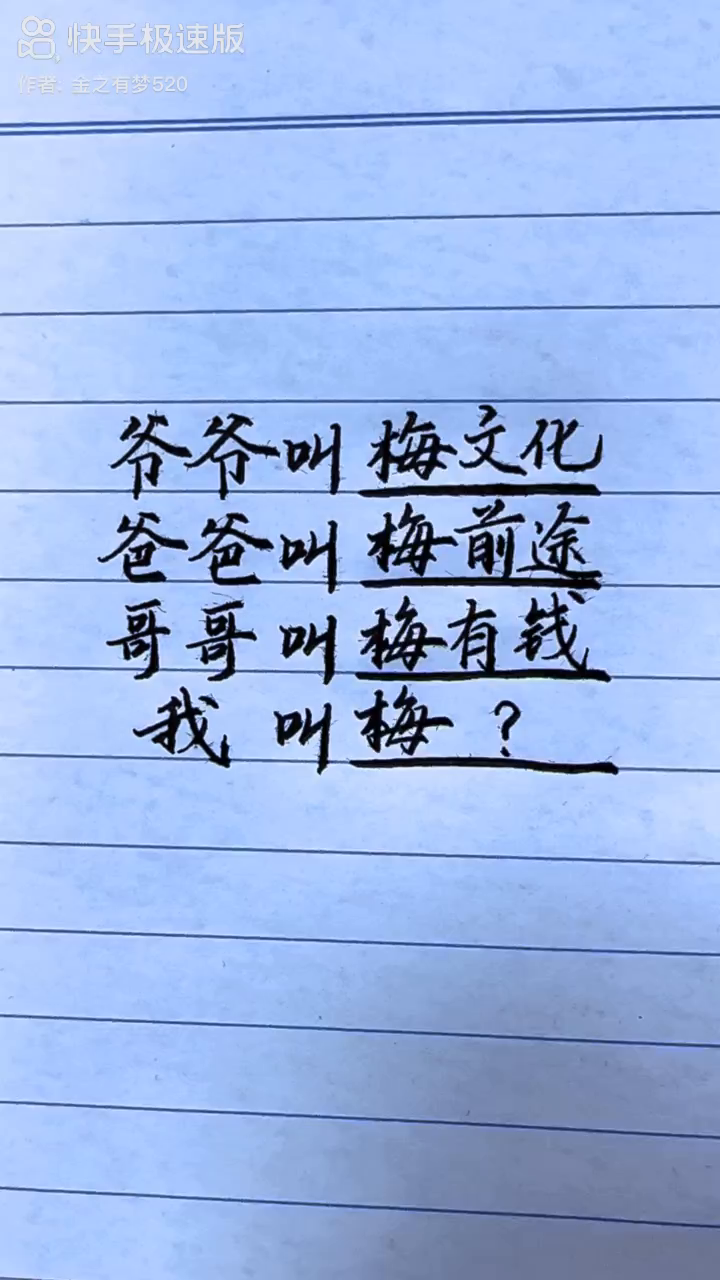 快手极速版
作者: 金之有梦520
爷爷叫梅文化
爸爸叫梅前途
哥哥叫梅有钱
我叫梅?